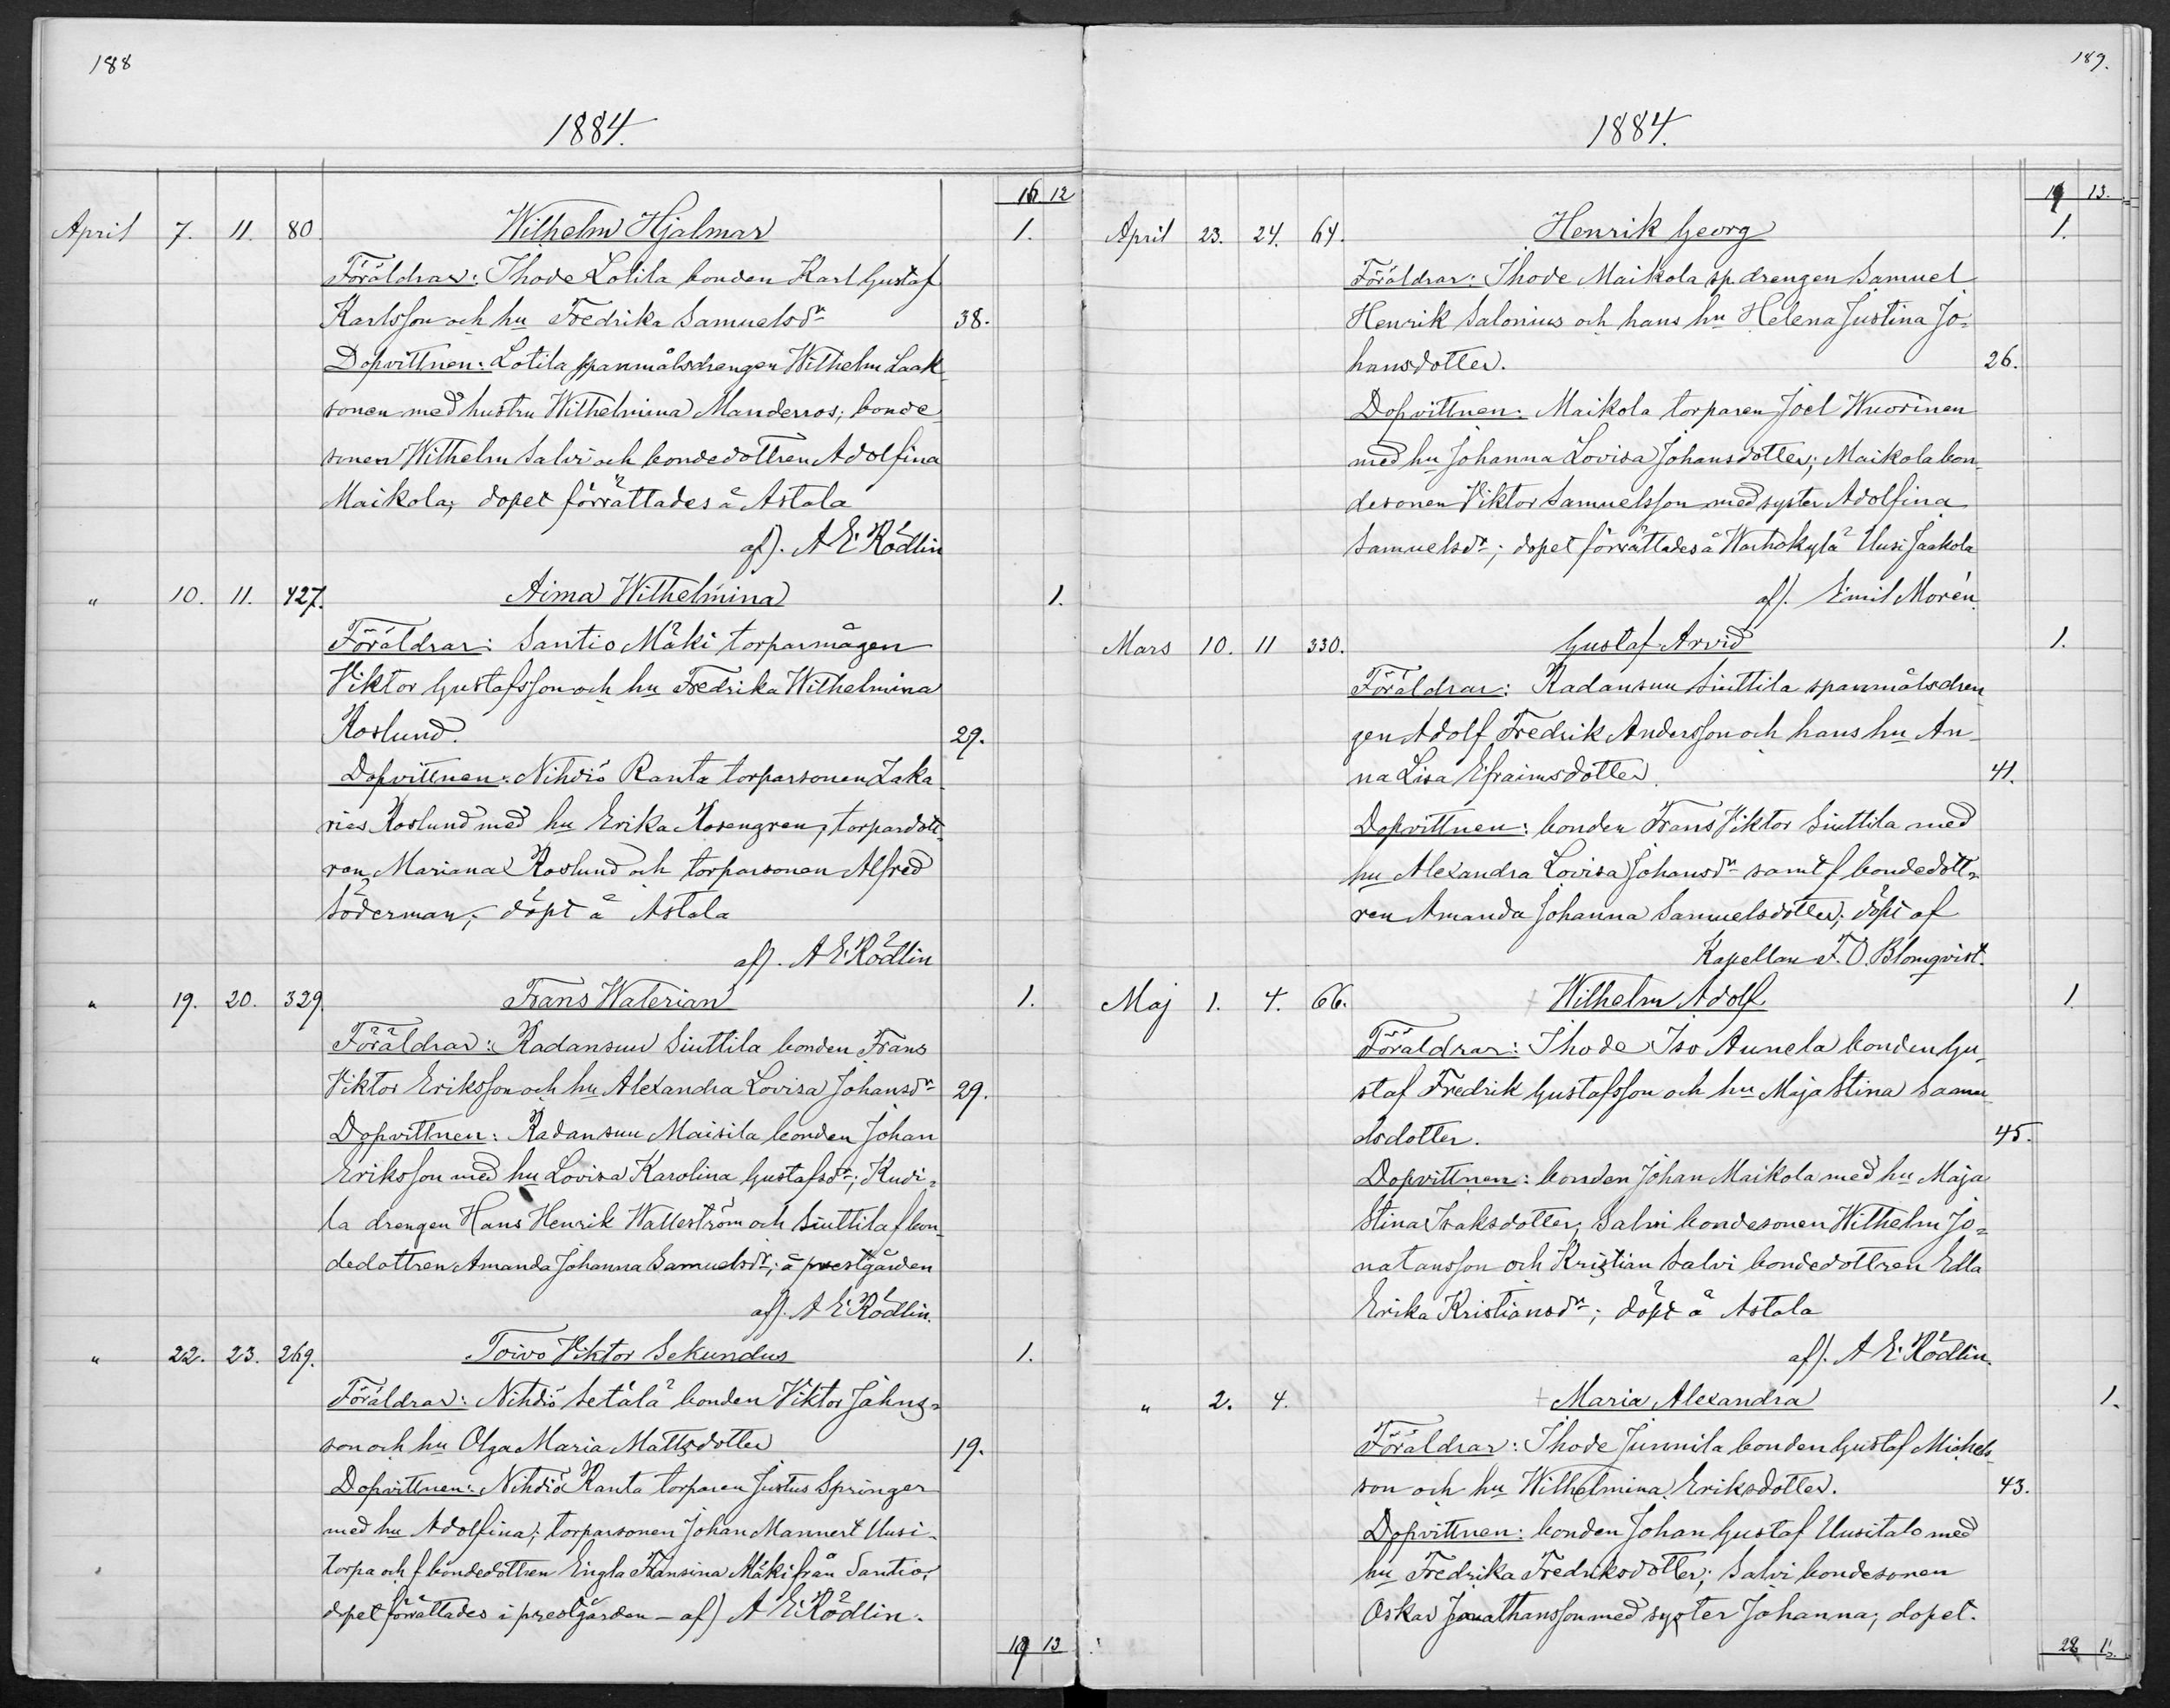 188
1884.
16 12
April 7. 11. 80. Wilhelm Hjalmar 1.
Föräldrar: Ihode Lotila bonden Karl Gustaf
Karlsson och hu Fredrika Samuelsdr 38.
Dopvittnen: Lotila spanmålsdrengen Wilhelm Laak-
sonen med hustru Wilhelmina Manderros; bonde-
sonen Wilhelm Salvi och bondedottren Adolfina
Maikola; dopet förrättades å Astala
af). A E Rödlin
" 10. 11. 427. Aima Wilhelmina 1.
Föräldrar: Santio Mäki torparmågen
Viktor Gustafsson och hu Fredrika Wilhelmina
Roslund. 29.
Dopvittnen: Nihdiö Ranta torparsonen Zaka-
rias Roslund med hu Erika Rosengren, torpardott-
ren Mariana Roslund och torparsonen Alfred
Söderman; döpt å Astala
af). A E Rödlin
" 19. 20. 329. Frans Walerian 1.
Föräldrar: Radansuu Siuttila bonden Frans
Viktor Eriksson och hu Alexandra Lovisa Johansdr 29.
Dopvittnen: Radansuu Maisila bonden Johan
Eriksson med hu Lovisa Karolina Gustafsdr; Kudi-
la drengen Hans Henrik Walleström och Siuttila f bon-
dedottren Amanda Johanna Samuelsdr; å prestgården
af). A E Rödlin.
" 22. 23. 269. Toivo Viktor Sekundus 1.
Föräldrar: Nihdiö Setälä bonden Viktor Jahns-
son och hu Olga Maria Mattsdotter 19.
Dopvittnen: Nihdiö Ranta torparen Justus Springer
med hu Adolfina; torparsonen Johan Mannert Uusi-
torpa och f bondedottren Engla Fransina Mäki från Santio;
dopet förrättades i prestgården - af) A E Rödlin.
19 13
189.
1884.
19 13.
April 23. 24. 64. Henrik Georg 1.
Föräldrar: Ihode Maikola sp. drengen Samuel
Henrik Salonius och hans hu Helena Justina Jo-
hansdotter. 26.
Dopvittnen: Maikola torparen Joel Wuorinen
med hu Johanna Lovisa Johansdotter; Maikola bon-
desonen Viktor Samuelsson med syster Adolfina
Samuelsdr; dopet förrättades å Warhokylä Uusi Jaakola
af). Emil Morén.
Mars 10. 11 330. Gustaf Arvid 1.
Föräldrar: Radansuu Siuttila spanmålsdren-
gen Adolf Fredrik Andersson och hans hu An-
na Lisa Efraimsdotter. 41.
Dopvittnen: bonden Frans Viktor Siuttila med
hu Alexandra Lovisa Johansdr samt f bondedott-
ren Amanda Johanna Samuelsdotter; döpt af
Kapellan F. O. Blomqvist.
Maj 1. 4. 66. + Wilhelm Adolf 1
Föräldrar: Ihode Iso Aunela bonden Gu-
staf Fredrik Gustafsson och hu Maja Stina Samu-
elsdotter. 45.
Dopvittnen: bonden Johan Maikola med hu Maja
Stina Isaksdotter; Salvi bondesonen Wilhelm Jo-
natansson och Kristian Salvi bondedottren Edla
Erika Kristiansdr; döpt å Astala
af). A E Rödlin.
" 2. 4. + Maria Alexandra 1.
Föräldrar: Ihode Junnila bonden Gustaf Michels-
son och hu Wilhelmina Eriksdotter. 43.
Dopvittnen: bonden Johan Gustaf Uusitalo med
hu Fredrika Fredriksdotter; Salvi bondesonen
Oskar Jonathansson med syster Johanna; dopet.